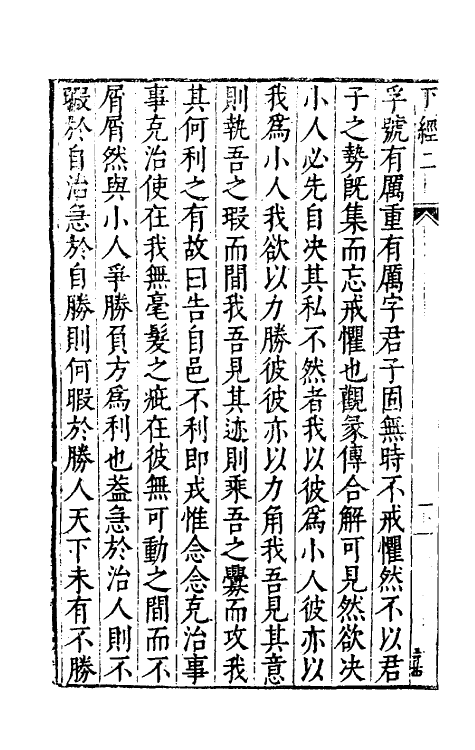 下經二
孚號有厲重有厲字君子固無時不戒懼然不以君
子之勢旣集而忘戒懼也觀彖傳合解可見然欲决
小人必先自决其私不然者我以彼爲小人彼亦以
我爲小人我欲以力勝彼彼亦以力角我吾見其意
則執吾之瑕而間我吾見其迹則乘吾之釁而攻我
其何利之有故曰告自邑不利即戎惟念念克治事
事克治使在我無毫髮之疵在彼無可動之間而不
屑屑然與小人爭勝負方爲利也葢急於治人則不
暇於自治急於自勝則何暇於勝人天下未有不勝